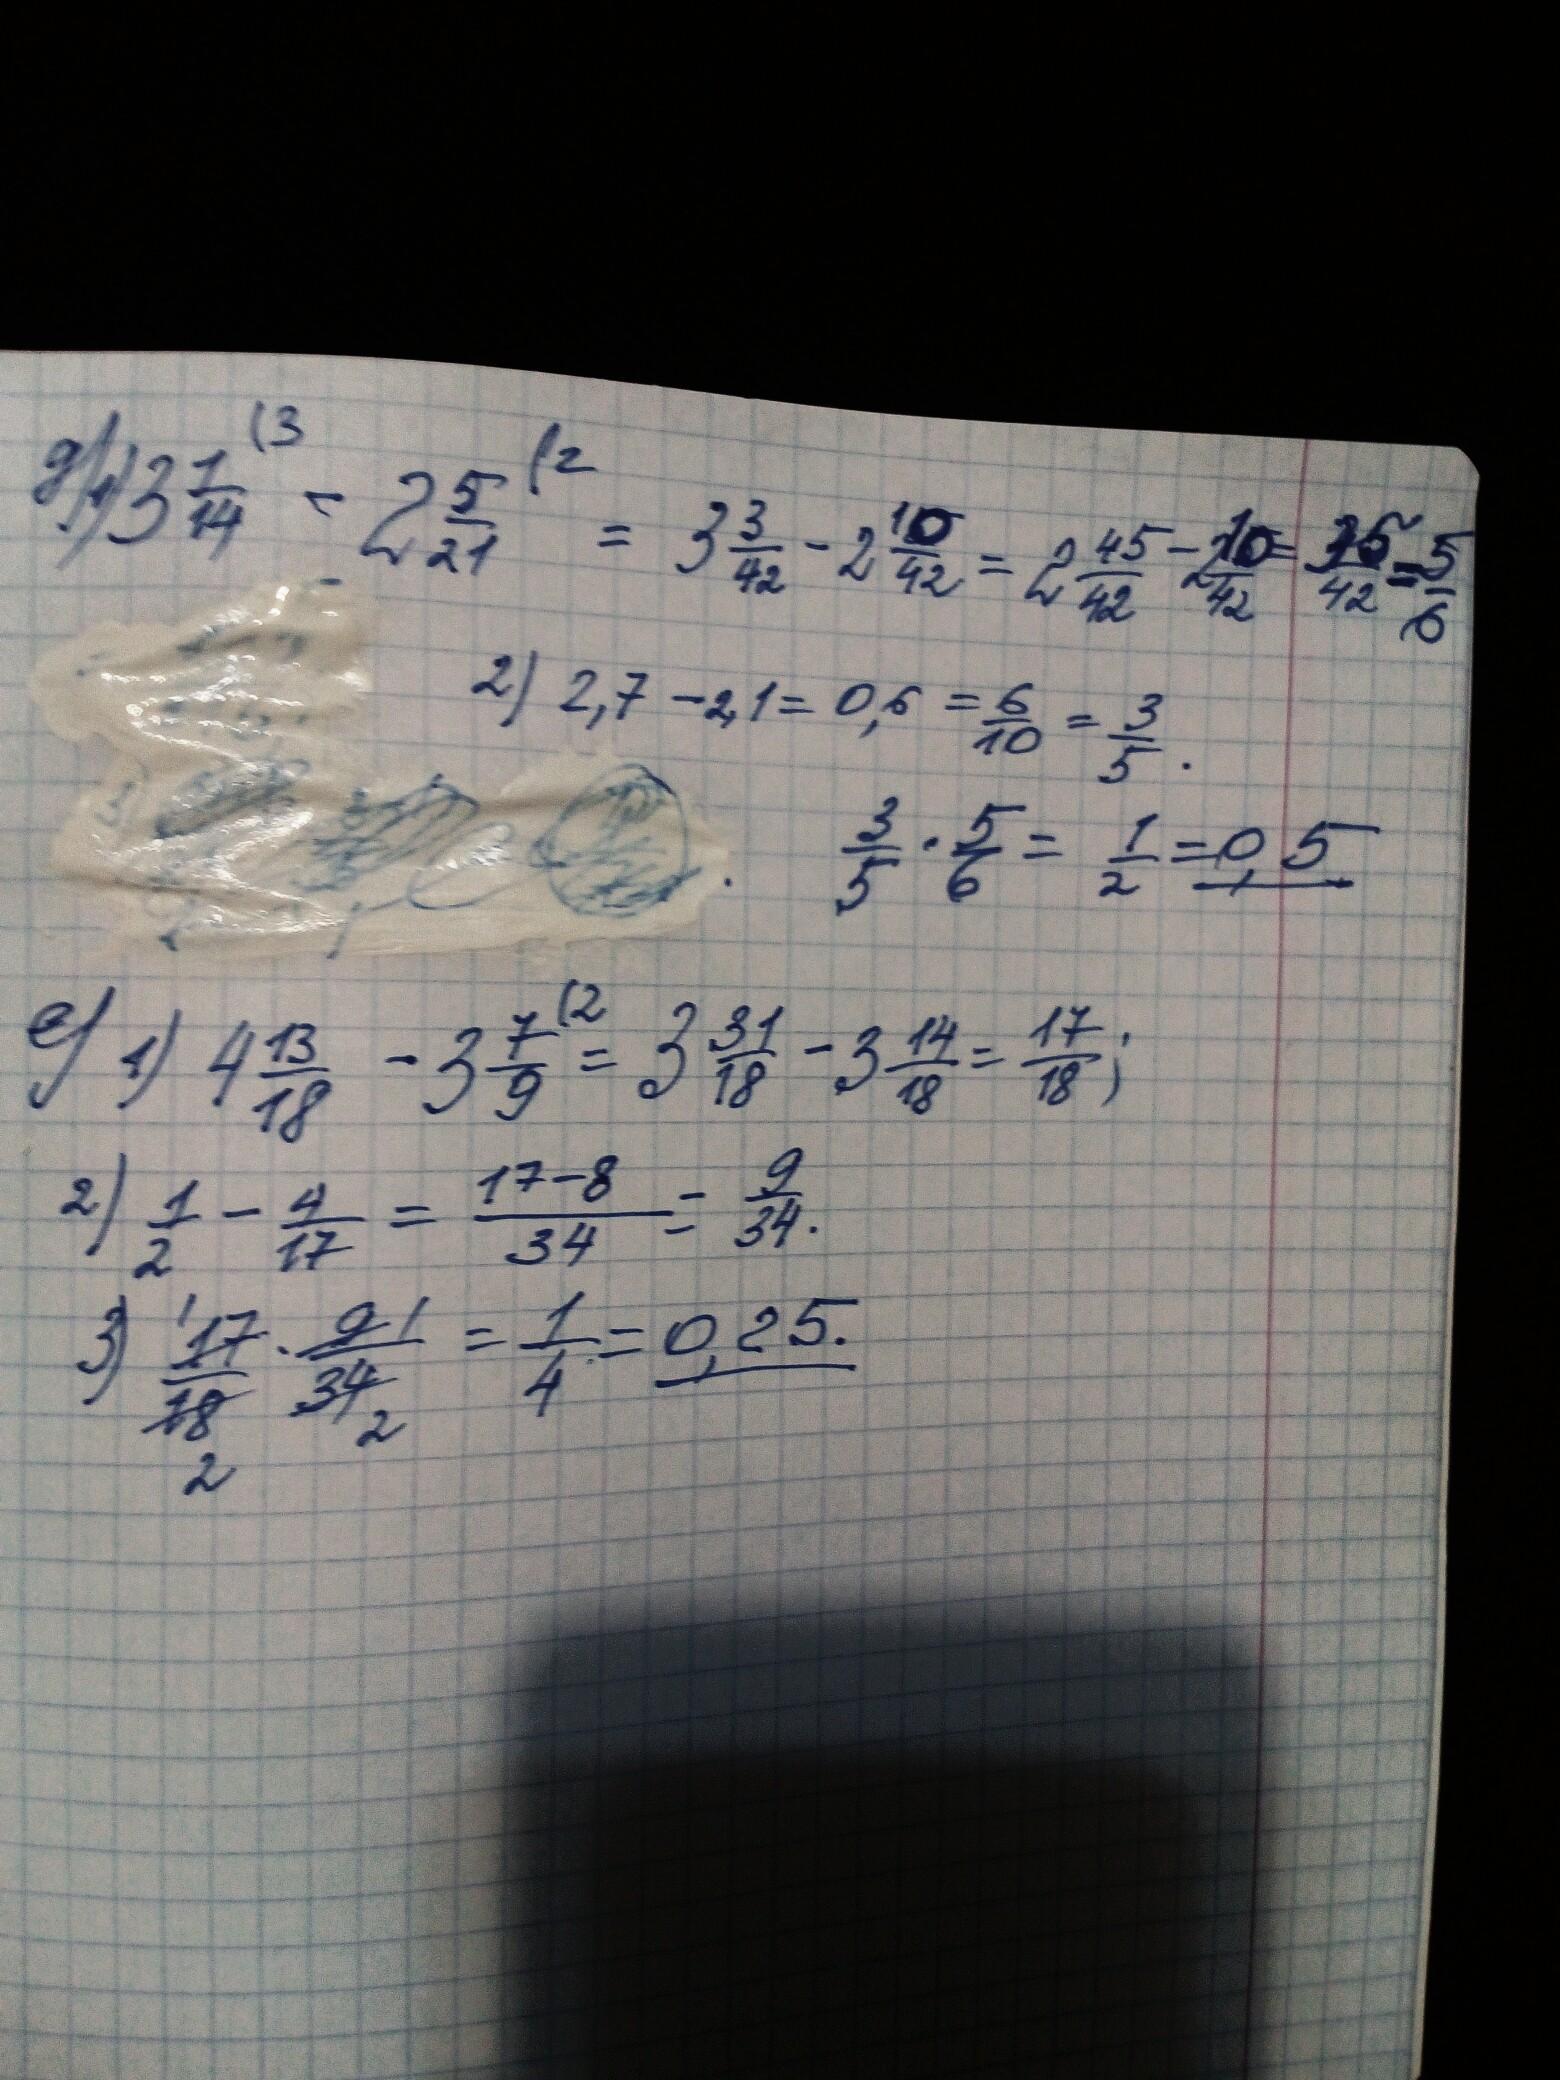 д) 1) 3 1/14 (3 - 2 5/21 (2 = 3 3/42 - 2 10/42 = 2 45/42 - 2 10/42 = 35/42 = 5/6
2) 2,7 - 2,1 = 0,6 = 6/10 = 3/5.
3/5 · 5/6 = 1/2 = 0,5
е) 1) 4 13/18 - 3 7/9 (2 = 3 31/18 - 3 14/18 = 17/18;
2) 1/2 - 4/17 = 17-8/34 = 9/34.
3) 17/18 · 9/34 = 1/4 = 0,25.